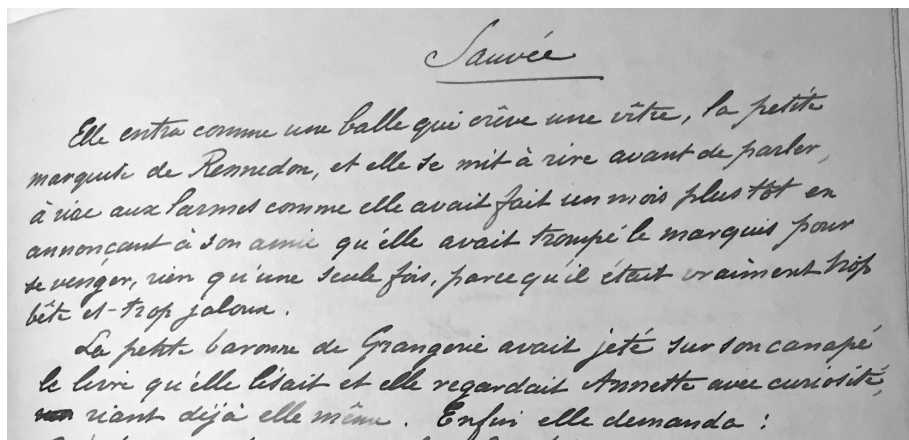 Sauvée
Elle entra comme une balle qui crève une vitre, la petite
marquise de Rennedon, et elle se mit à rire avant de parler,
à rire aux larmes comme elle avait fait un mois plus tôt en
annonçant à son amie qu'elle avait trompé le marquis pour
se venger, rien qu'une seule fois, parce qu'il était vraiment trop
bête et trop jaloux.
La petite baronne de Grangerie avait jeté sur son canapé
le livre qu'elle lisait et elle regardait Annette avec curiosité,
riant déjà elle même. Enfin elle demanda :